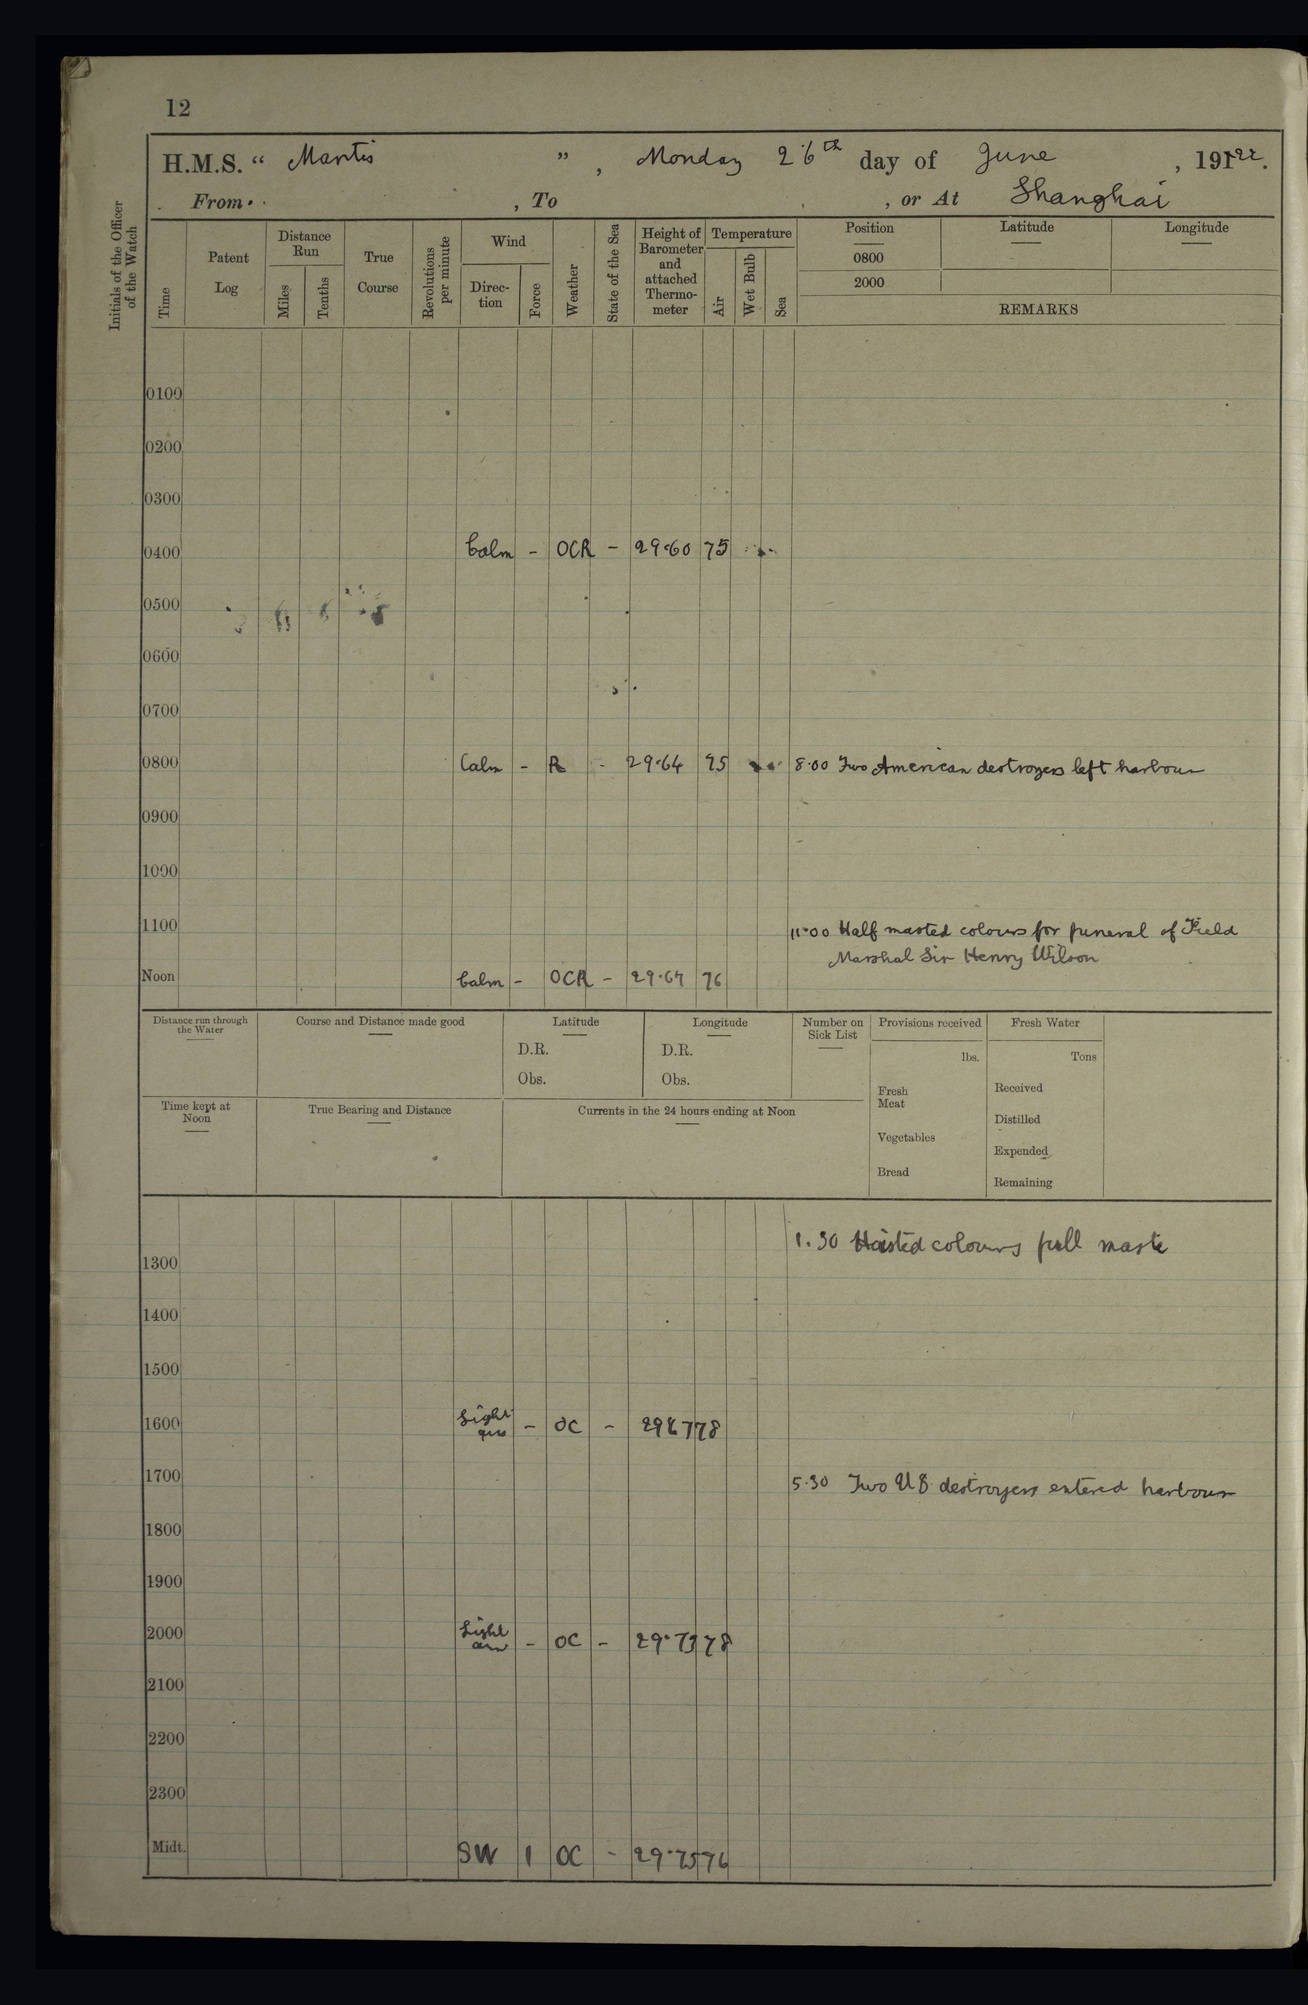 12
H.M.S. “ Mantis ” , Monday 26th day of June , 1922.
From , To , or At Shanghai
Initials of the Officer of the Watch
Time
Patent Log
Distance Run
Miles
Tenths
True Course
Revolutions per minute
Wind
Direc-tion
Force
Weather
State of the Sea
Height of Barometer and attached Thermo-meter
Temperature
Air
Wet Bulb
Sea
Position Latitude Longitude
0800
2000
REMARKS
0100
0200
0300
0400 Calm - OCR - 29.60 75
0500
0600
0700
0800 Calm - R - 29.64 75 8.00 Two American destroyers left harbour
0900
1000
1100 11.00 Half masted colours for funeral of Field
Marshal Sir Henry Wilson
Noon Calm - OCR - 29.67 76
Distance run through the Water
Course and Distance made good
Latitude
D.R.
Obs.
Longitude
D.R.
Obs.
Number on Sick List
Provisions received
lbs.
Fresh Meat
Vegetables
Bread
Fresh Water
Tons
Received
Distilled
Expended
Remaining
Time kept at Noon
True Bearing and Distance
Currents in the 24 hours ending at Noon
1.30 Hoisted colours full maste
1300
1400
1500
1600 Light airs - OC - 2967 78
1700 5.30 Two US destroyers entered harbour
1800
1900
2000 Light airs - OC - 29.73 78
2100
2200
2300
Midt. SW 1 OC - 29.75 76